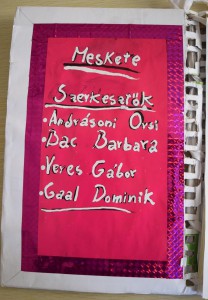 Meskete
Szerkesztők
• Andrásoni Orsi
• Dac Barbara
• Veres Gábor
• Gaal Dominik